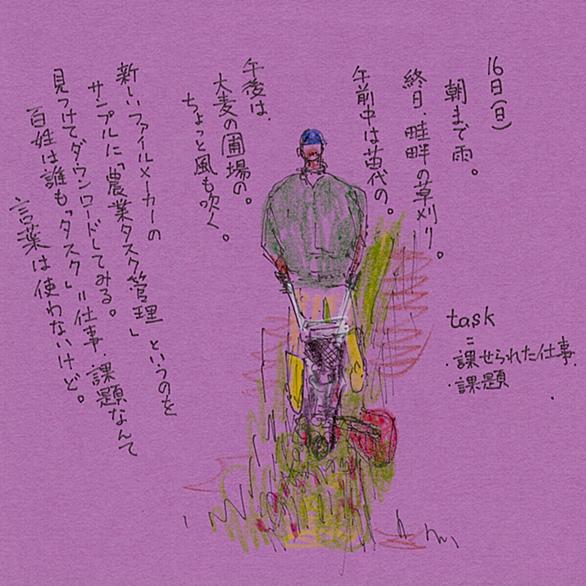 16日(日)
朝まで雨。
終日、畦畔の草刈り。
午前中は苗代の。
午後は、
大麦の圃場の。
ちょっと風も吹く。
新しいファイルメーカーの
サンプルに「農業タスク管理」というのを
見つけてダウンロードしてみる。
百姓は誰も「タスク」=仕事・課題なんて
言葉は使わないけど。
task
=
・課せられた仕事
・課題